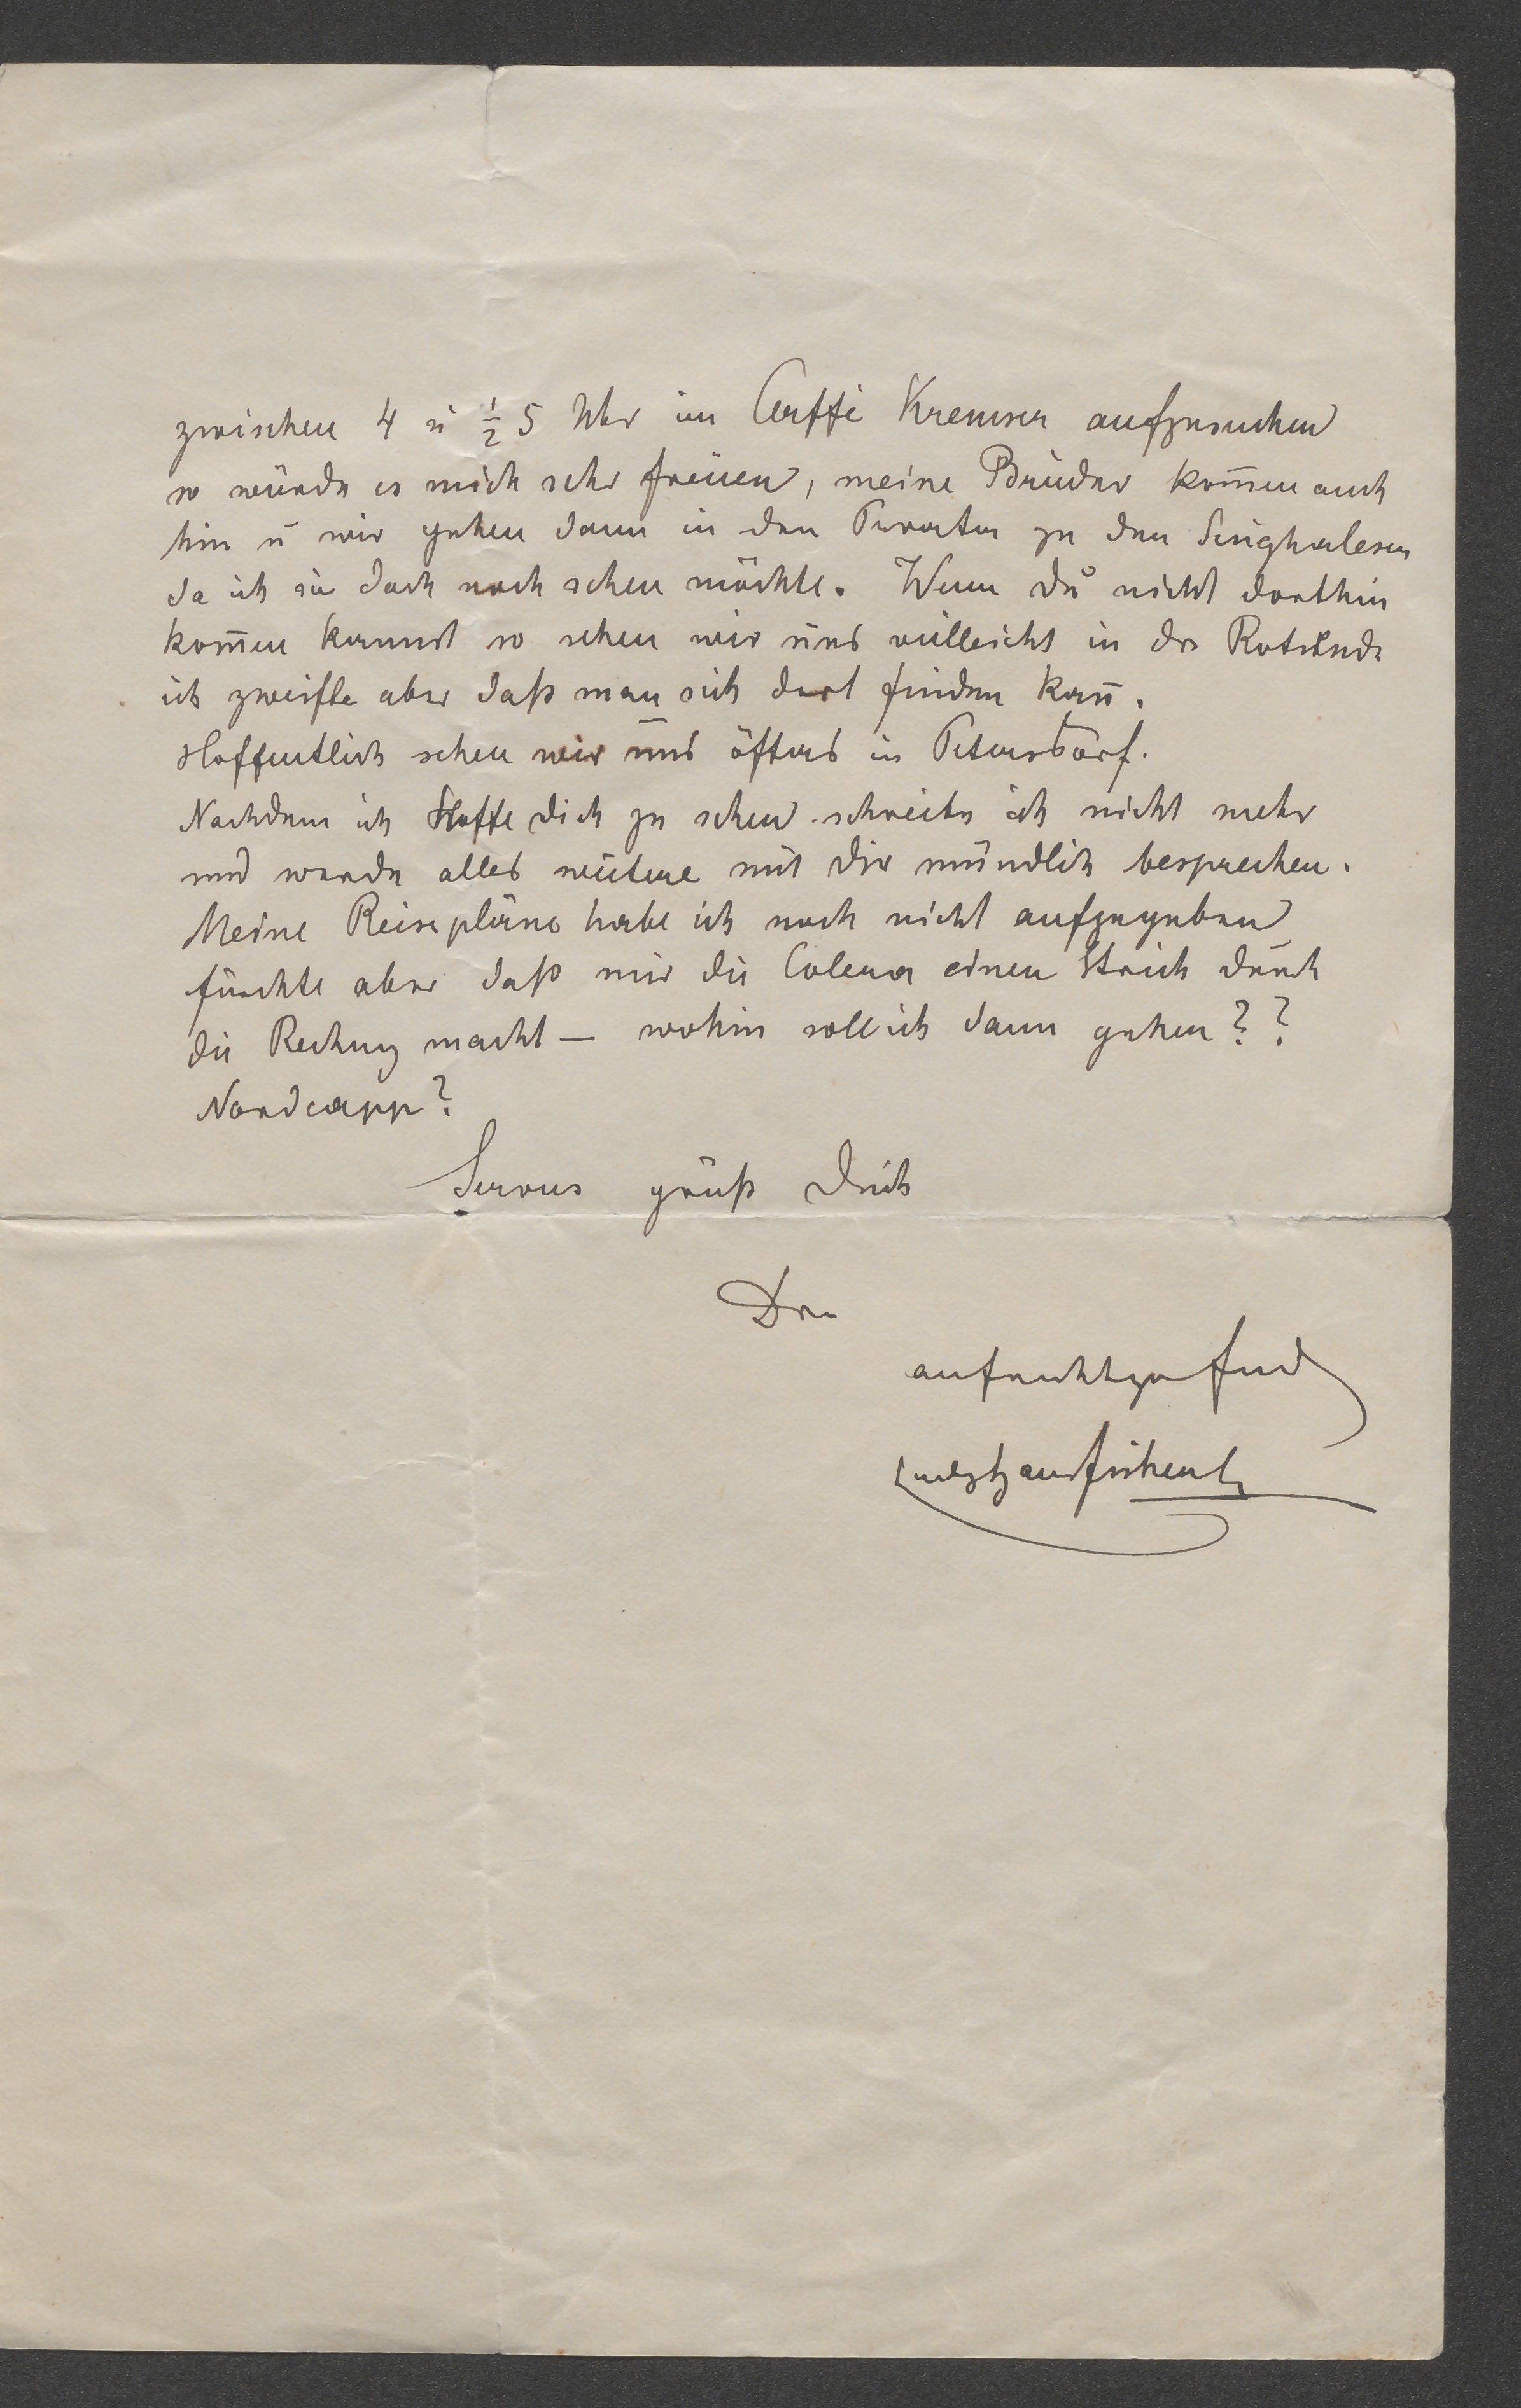 zwischen 4 u ½ 5 Uhr im Caffé Kremser aufzusuchen
so würde es mich sehr freuen, meine Brüder kom̄en auch
hin u wir gehen dann in den Prater zu den Singhalesen
da ich sie doch noch sehen möchte. Wenn du nicht dorthin
kom̄en kannst so sehen wir uns vielleicht in der Rotunde
ich zweifle aber daß man sich dort finden kan̄.
Hoffentlich sehen wir uns öfters in Petersdorf.
Nachdem ich hoffe dich zu sehen schreibe ich nicht mehr
und werde alles weitere mit dir mündlich besprechen.
Meine Reisepläne habe ich noch nicht aufgegeben
fürchte aber daß mir die Colera einen Strich durch
die Rechnung macht — wohin soll ich dann gehen??
Nordcapp?
Servus grüß dich
Dein
aufrichtger